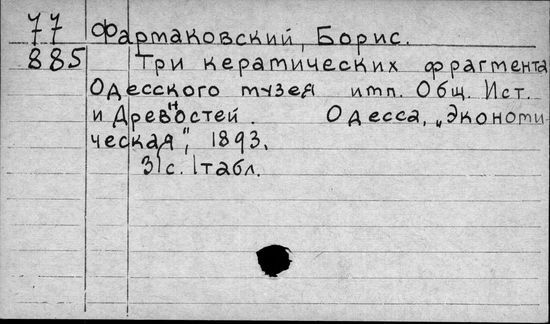 77 Фармаковский, Борис.
885 Три керамических фрагмента
Одесского музея имп. Общ. Ист.
и Древностей. Одесса, „Экономи-
ческая", 1893.
31с. 1табл.